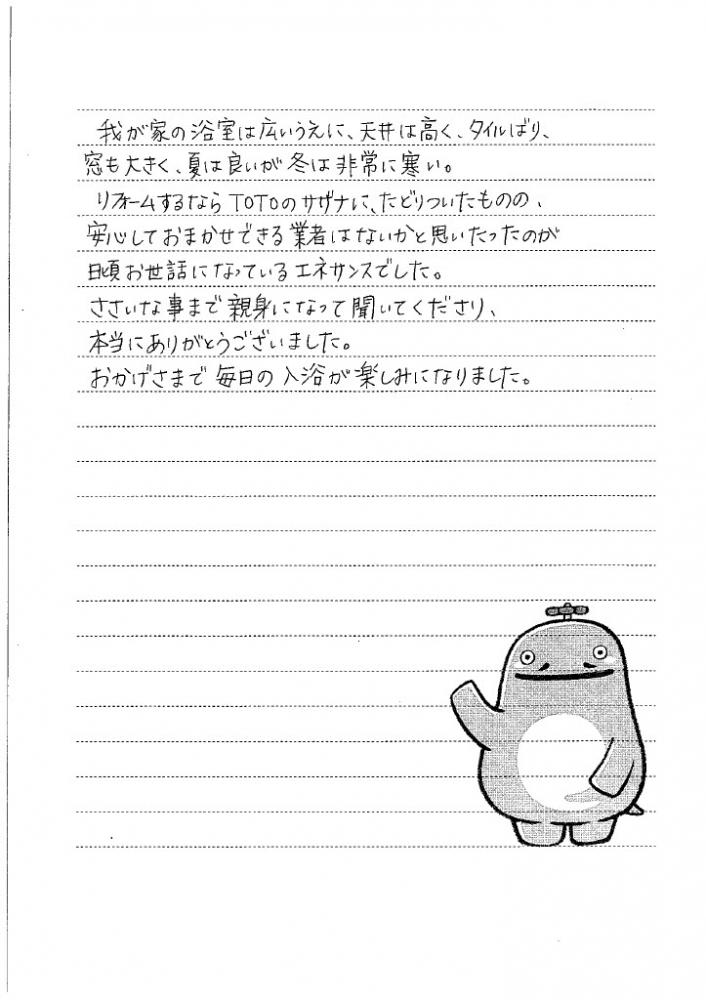 我が家の浴室は広いうえに、天井は高く、タイルばり、
窓も大きく、夏は良いが冬は非常に寒い。
リフォームするならTOTOのサザナに、たどりついたものの、
安心しておまかせできる業者はないかと思いたったのが
日頃お世話になっているエネサンスでした。
ささいな事まで親身になって聞いてくださり、
本当にありがとうございました。
おかげさまで毎日の入浴が楽しみになりました。